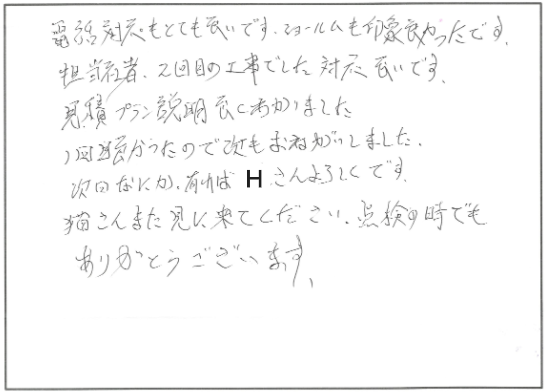 電話対応もとても良いです。ショールームも印象良かったです。
担当者、2回目の工事でした 対応良いです。
見積プラン説明良くわかりました
1回目良かったので次もおねがいしました。
次回なにか、有れば Hさんよろしくです。
猫さんまた見に来てください、点検の時でも
ありがとうございます、